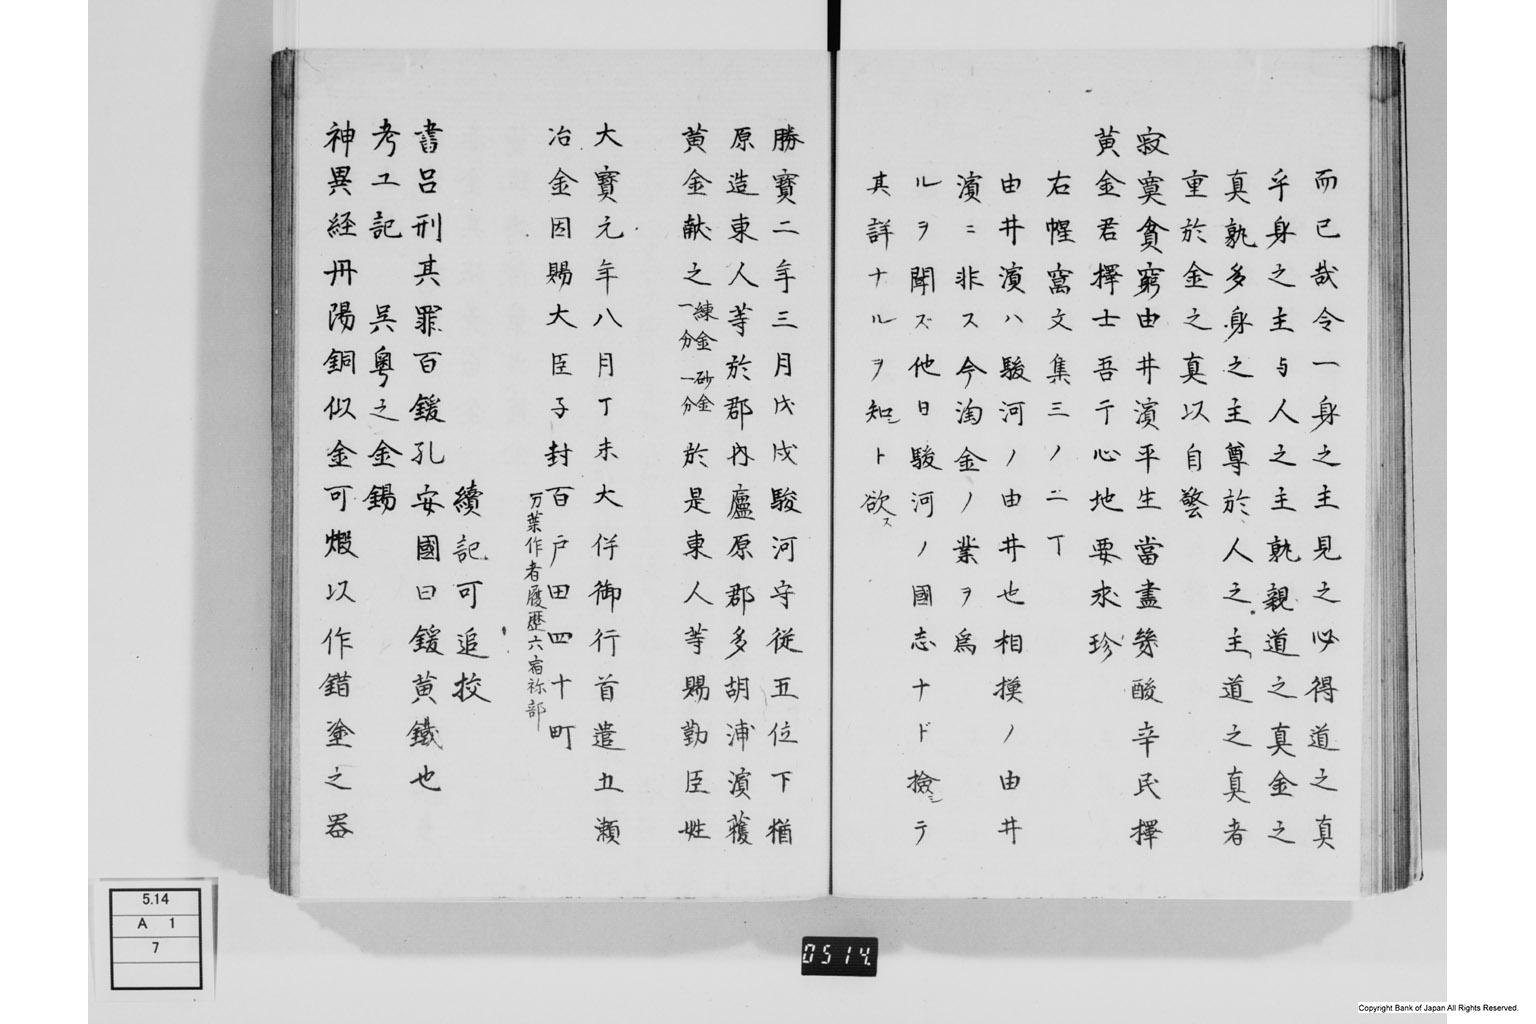 而已哉令一身之主見之必得道之真
乎身之主与人之主孰親道之真金之
真孰多身之主尊於人之主道之真者
重於金之真以自警
寂寞貧窮由井濱平生當盡幾酸辛民擇
黄金君擇士吾亍心地要求珍
右幄窩文集三ノ二丁
由井濱ハ駿河ノ由井也相摸ノ由井
濱ニ非ス今淘金ノ業ヲ爲
ルヲ聞ズ他日駿河ノ國志ナド撿シテ
其詳ナルヲ知ント欲ス
勝寳二年三月戊戌駿河守従五位下楢
原造東人等於郡内廬原郡多胡浦濱獲
黄金献之練金一分砂金一分於是東人等賜勤臣姓
大寳元年八月丁未大伴御行首遣五瀬
冶金因賜大臣子封百戸田四十町
万葉作者履歴六宿祢部
續記可追挍
書呂刑其罪百鍰孔安國曰鍰黄鐵也
考工記 呉粤之金錫
神異経丹陽銅似金可煅以作錯塗之器
5.14
A 1
7
0514.
Copyright Bank of Japan All Rights Reserved.